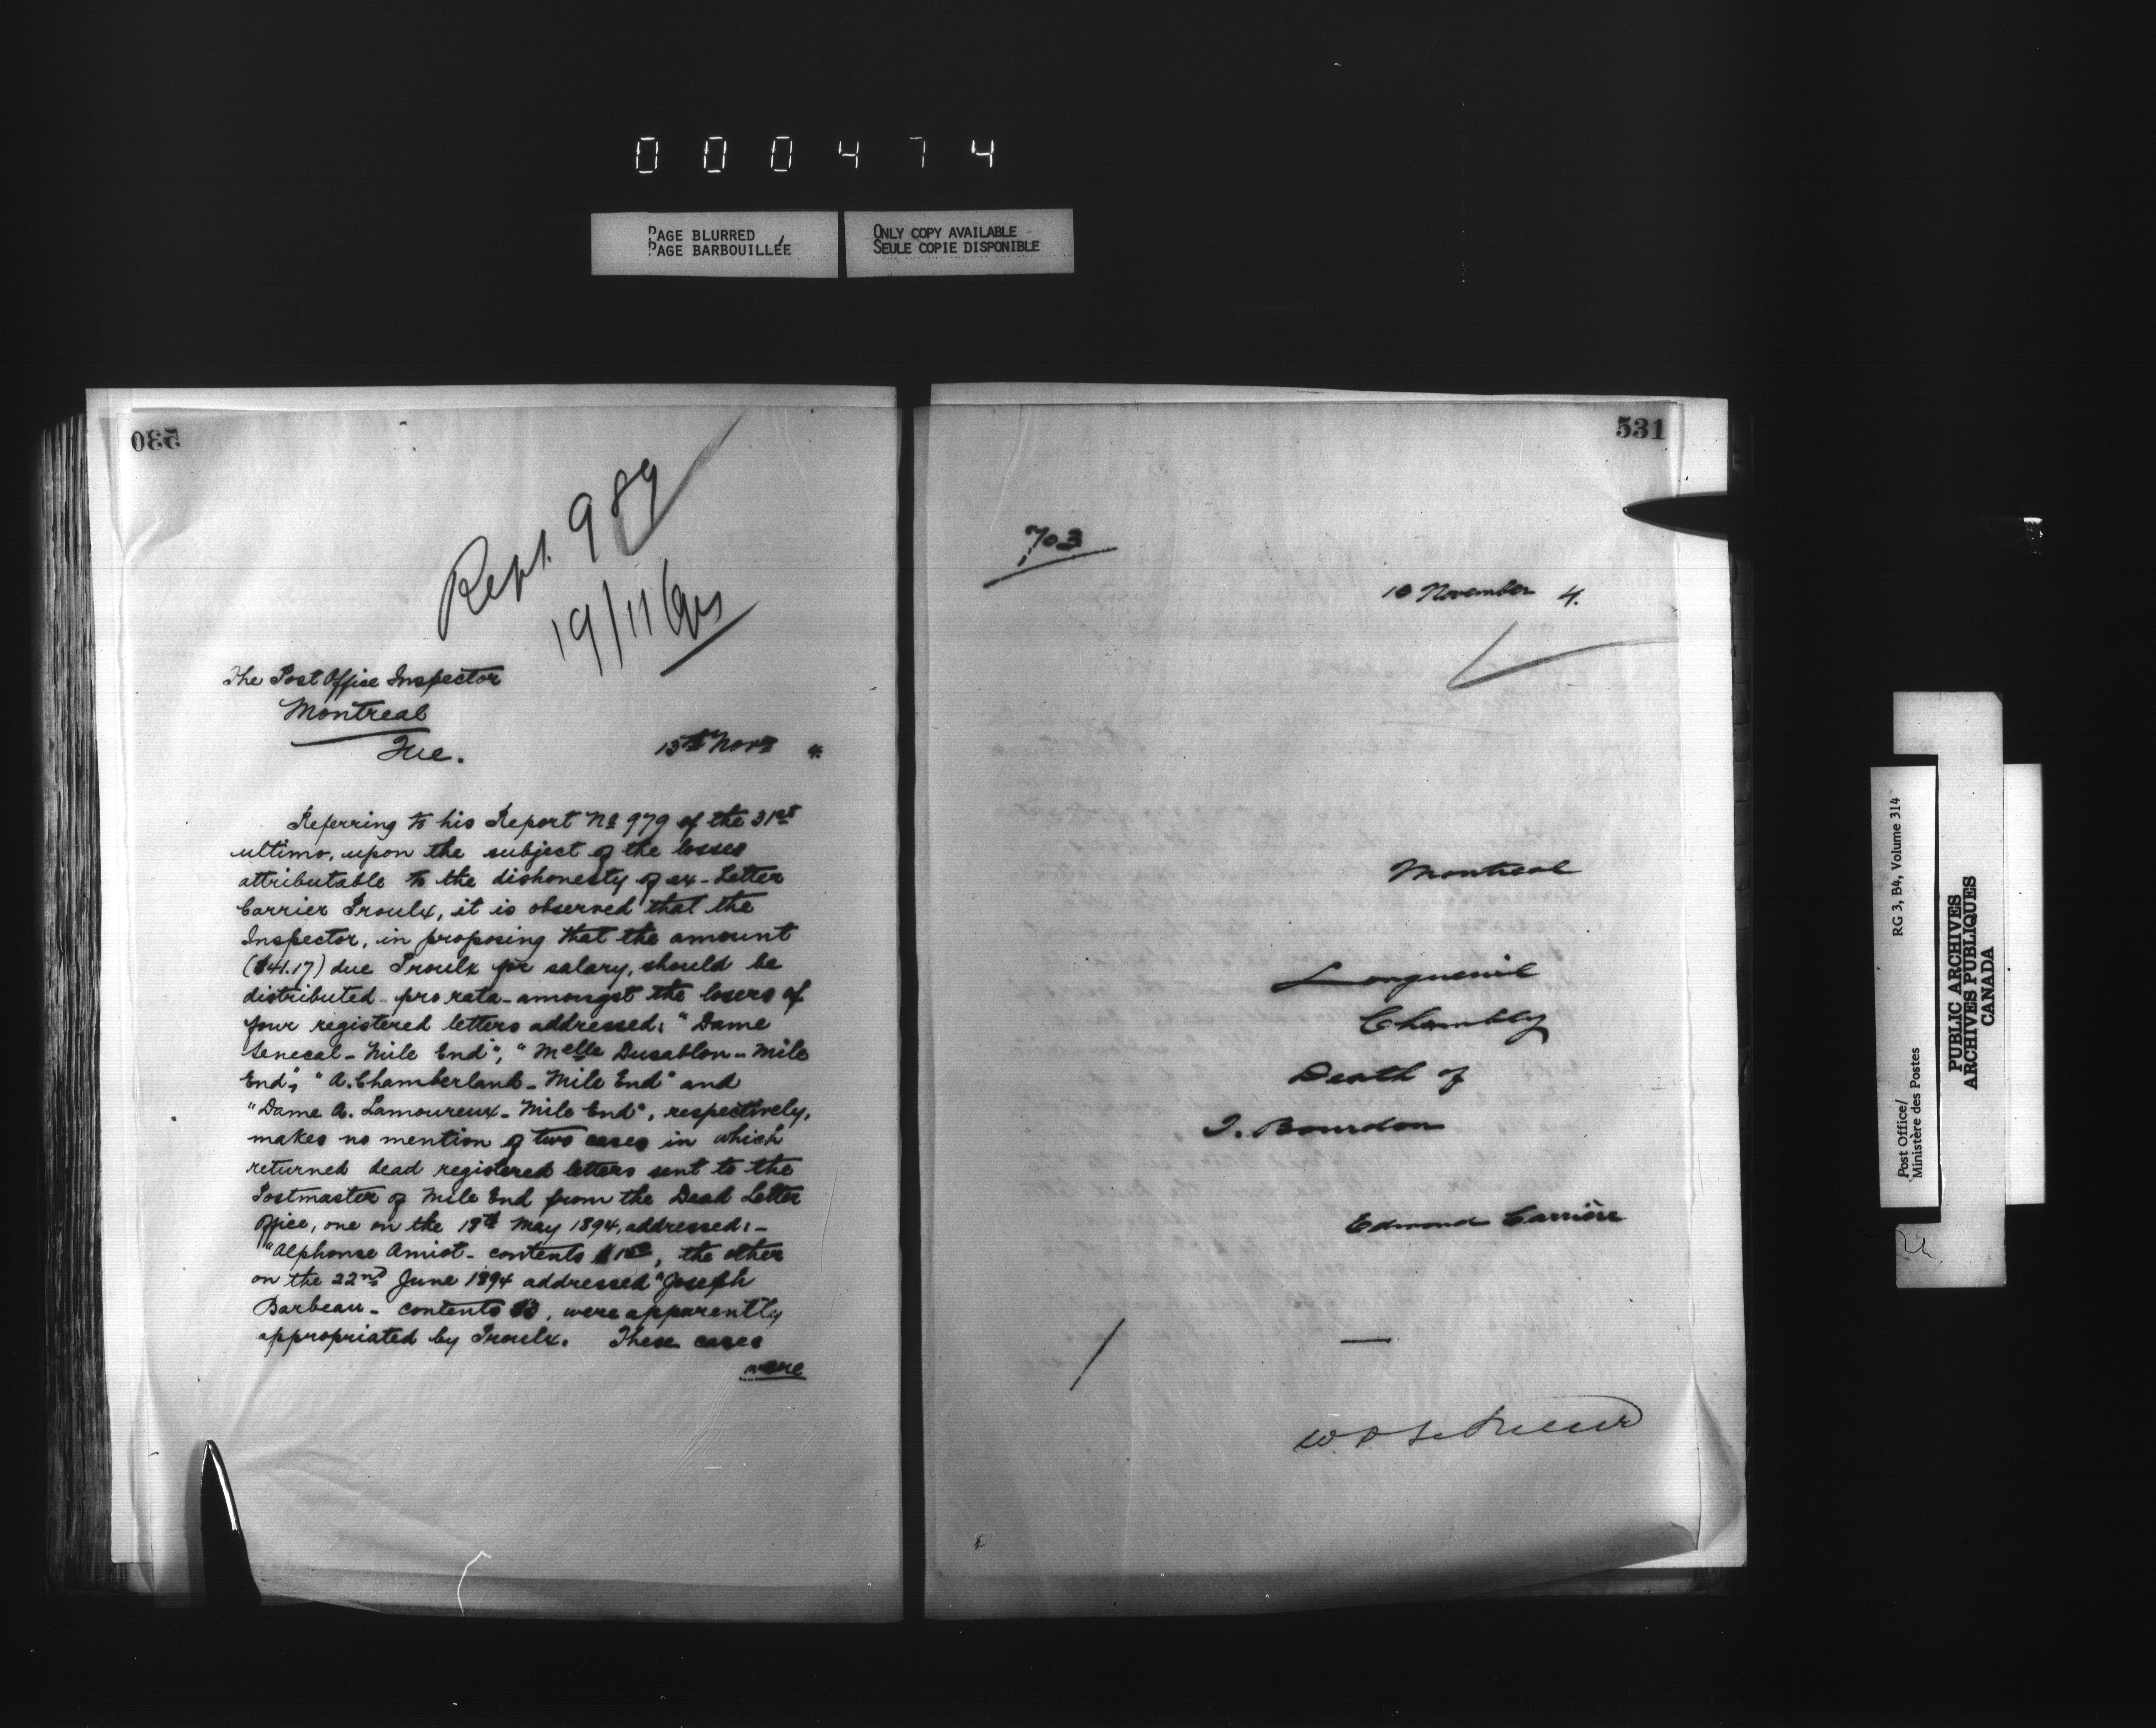 000474
PAGE BLURRED
PAGE BARBOUILLÉE
ONLY COPY AVAILABLE
SEULE COPIE DISPONIBLE
530
Rept. 989
19/11
The Post Office Inspector
Montreal
Que.
15th Novr 4.
Referring to his Report No 979 of the 31st
ultimo, upon the subject of the losses
attributable to the dishonesty of ex-Letter
Carrier Proulx, it is observed that the
Inspector, in proposing that the amount
($41.17) due Proulx for salary, should be
distributed - pro rata - amongst the losers of
four registered letters addressed: "Dame
Senecal - Mile End", "Melle Dusablon - Mile
End", "A. Chamberland - Mile End" and
"Dame A. Lamoureux - Mile End", respectively,
makes no mention of two cases in which
returned dead registered letters sent to the
Postmaster of Mile End from the Dead Letter
Office, one on the 18th May 1894, addressed: -
"Alphonse Amiot - contents $1.00, the other
on the 22nd June 1894 addressed "Joseph
Barbeau - contents $3, were apparently
appropriated by Proulx. These cases
were
531
703
10 November 4.
Montreal
Longueuil
Chambly
Death of
I. Bourdon
Edmond Carrière
RG 3, B4, Volume 314
Post Office/
Ministère des Postes
PUBLIC ARCHIVES
ARCHIVES PUBLIQUES
CANADA